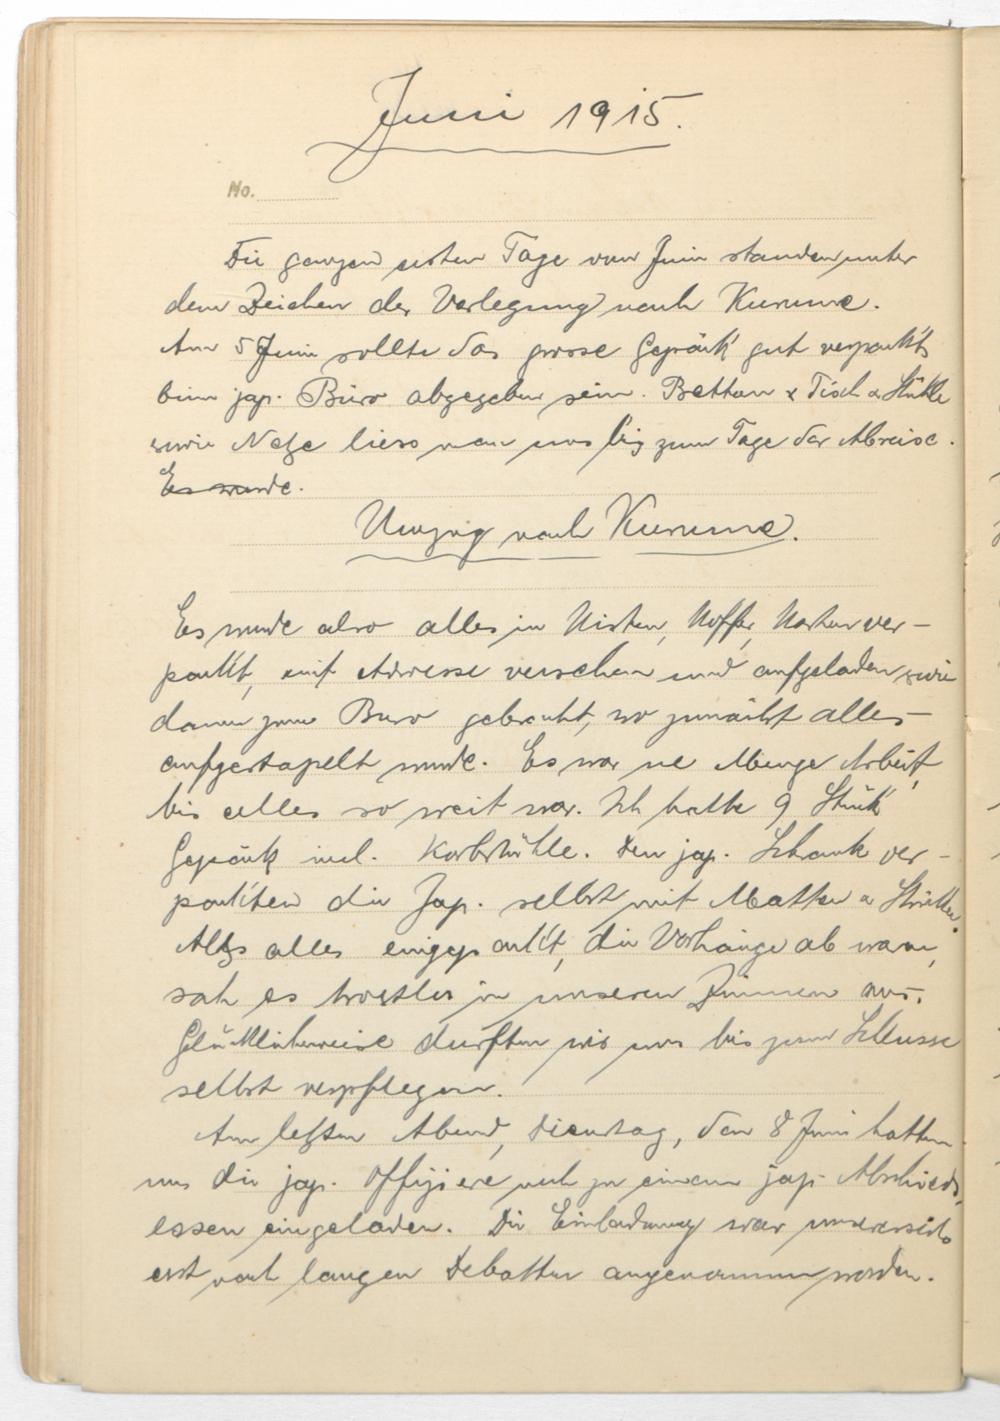 Juni 1915.
No.
Die ganzen ersten Tage vom Juni standen unter
dem Zeichen der Verlegung nach Kurume.
Am 5 Juni sollte das grosse Gepäck gut verpackt
beim jap. Büro abgegeben sein. Betten & Tisch & Stühle
sowie Netze liess man uns bis zum Tage der Abreise.
Es wurde.
Umzug nach Kurume.
Es wurde also alles in Kisten, Koffer, Kasten ver-
packt, mit Adresse versehen und aufgeladen sowie
dann zum Buro gebracht, wo zunächst alles
aufgestapelt wurde. Es war ne Menge Arbeit,
bis alles so weit war. Ich hatte 9 Stück
Gepäck incl. Korbstühle. Den jap. Schrank ver-
packten die Jap. selbst mit Matten & Stricken.
Als alles eingepackt, die Vorhänge ab waren,
sah es trostlos in unseren Zimmern aus.
Glücklicherweise durften wir uns bis zum Schlusse
selbst verpflegen.
Am letzten Abend, Dienstag, den 8 Juni hatten
uns die jap. Offiziere noch zu einem jap. Abschieds,
essen eingeladen. Die Einladung war unsererseits
erst nach langen Debatten angenommen worden.